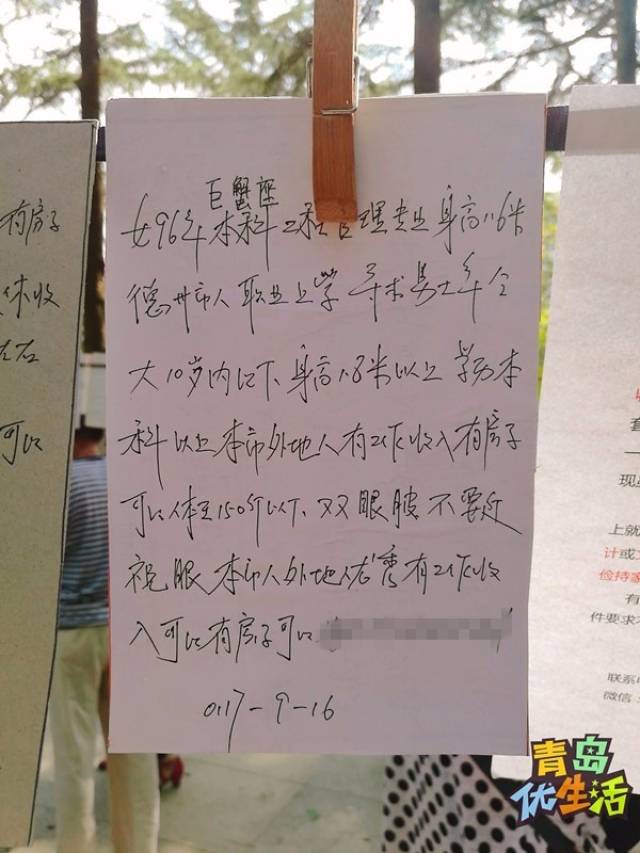 巨蟹座
女96年本科工程管理专业身高1.6米
德州市人职业上学 寻求男士年令
大10岁内以下身高1.8米以上学历本
科以上本市外地人有工作收入有房子
可以体重150斤以下双眼皮不要近
视眼本市人外地人优秀有工作收
入可以有房子可以
017-9-16
有房子
体收
左右
可以
套
一
现
上就
计或
俭持家
有
件要求不
联系
微信:
青岛
优生活